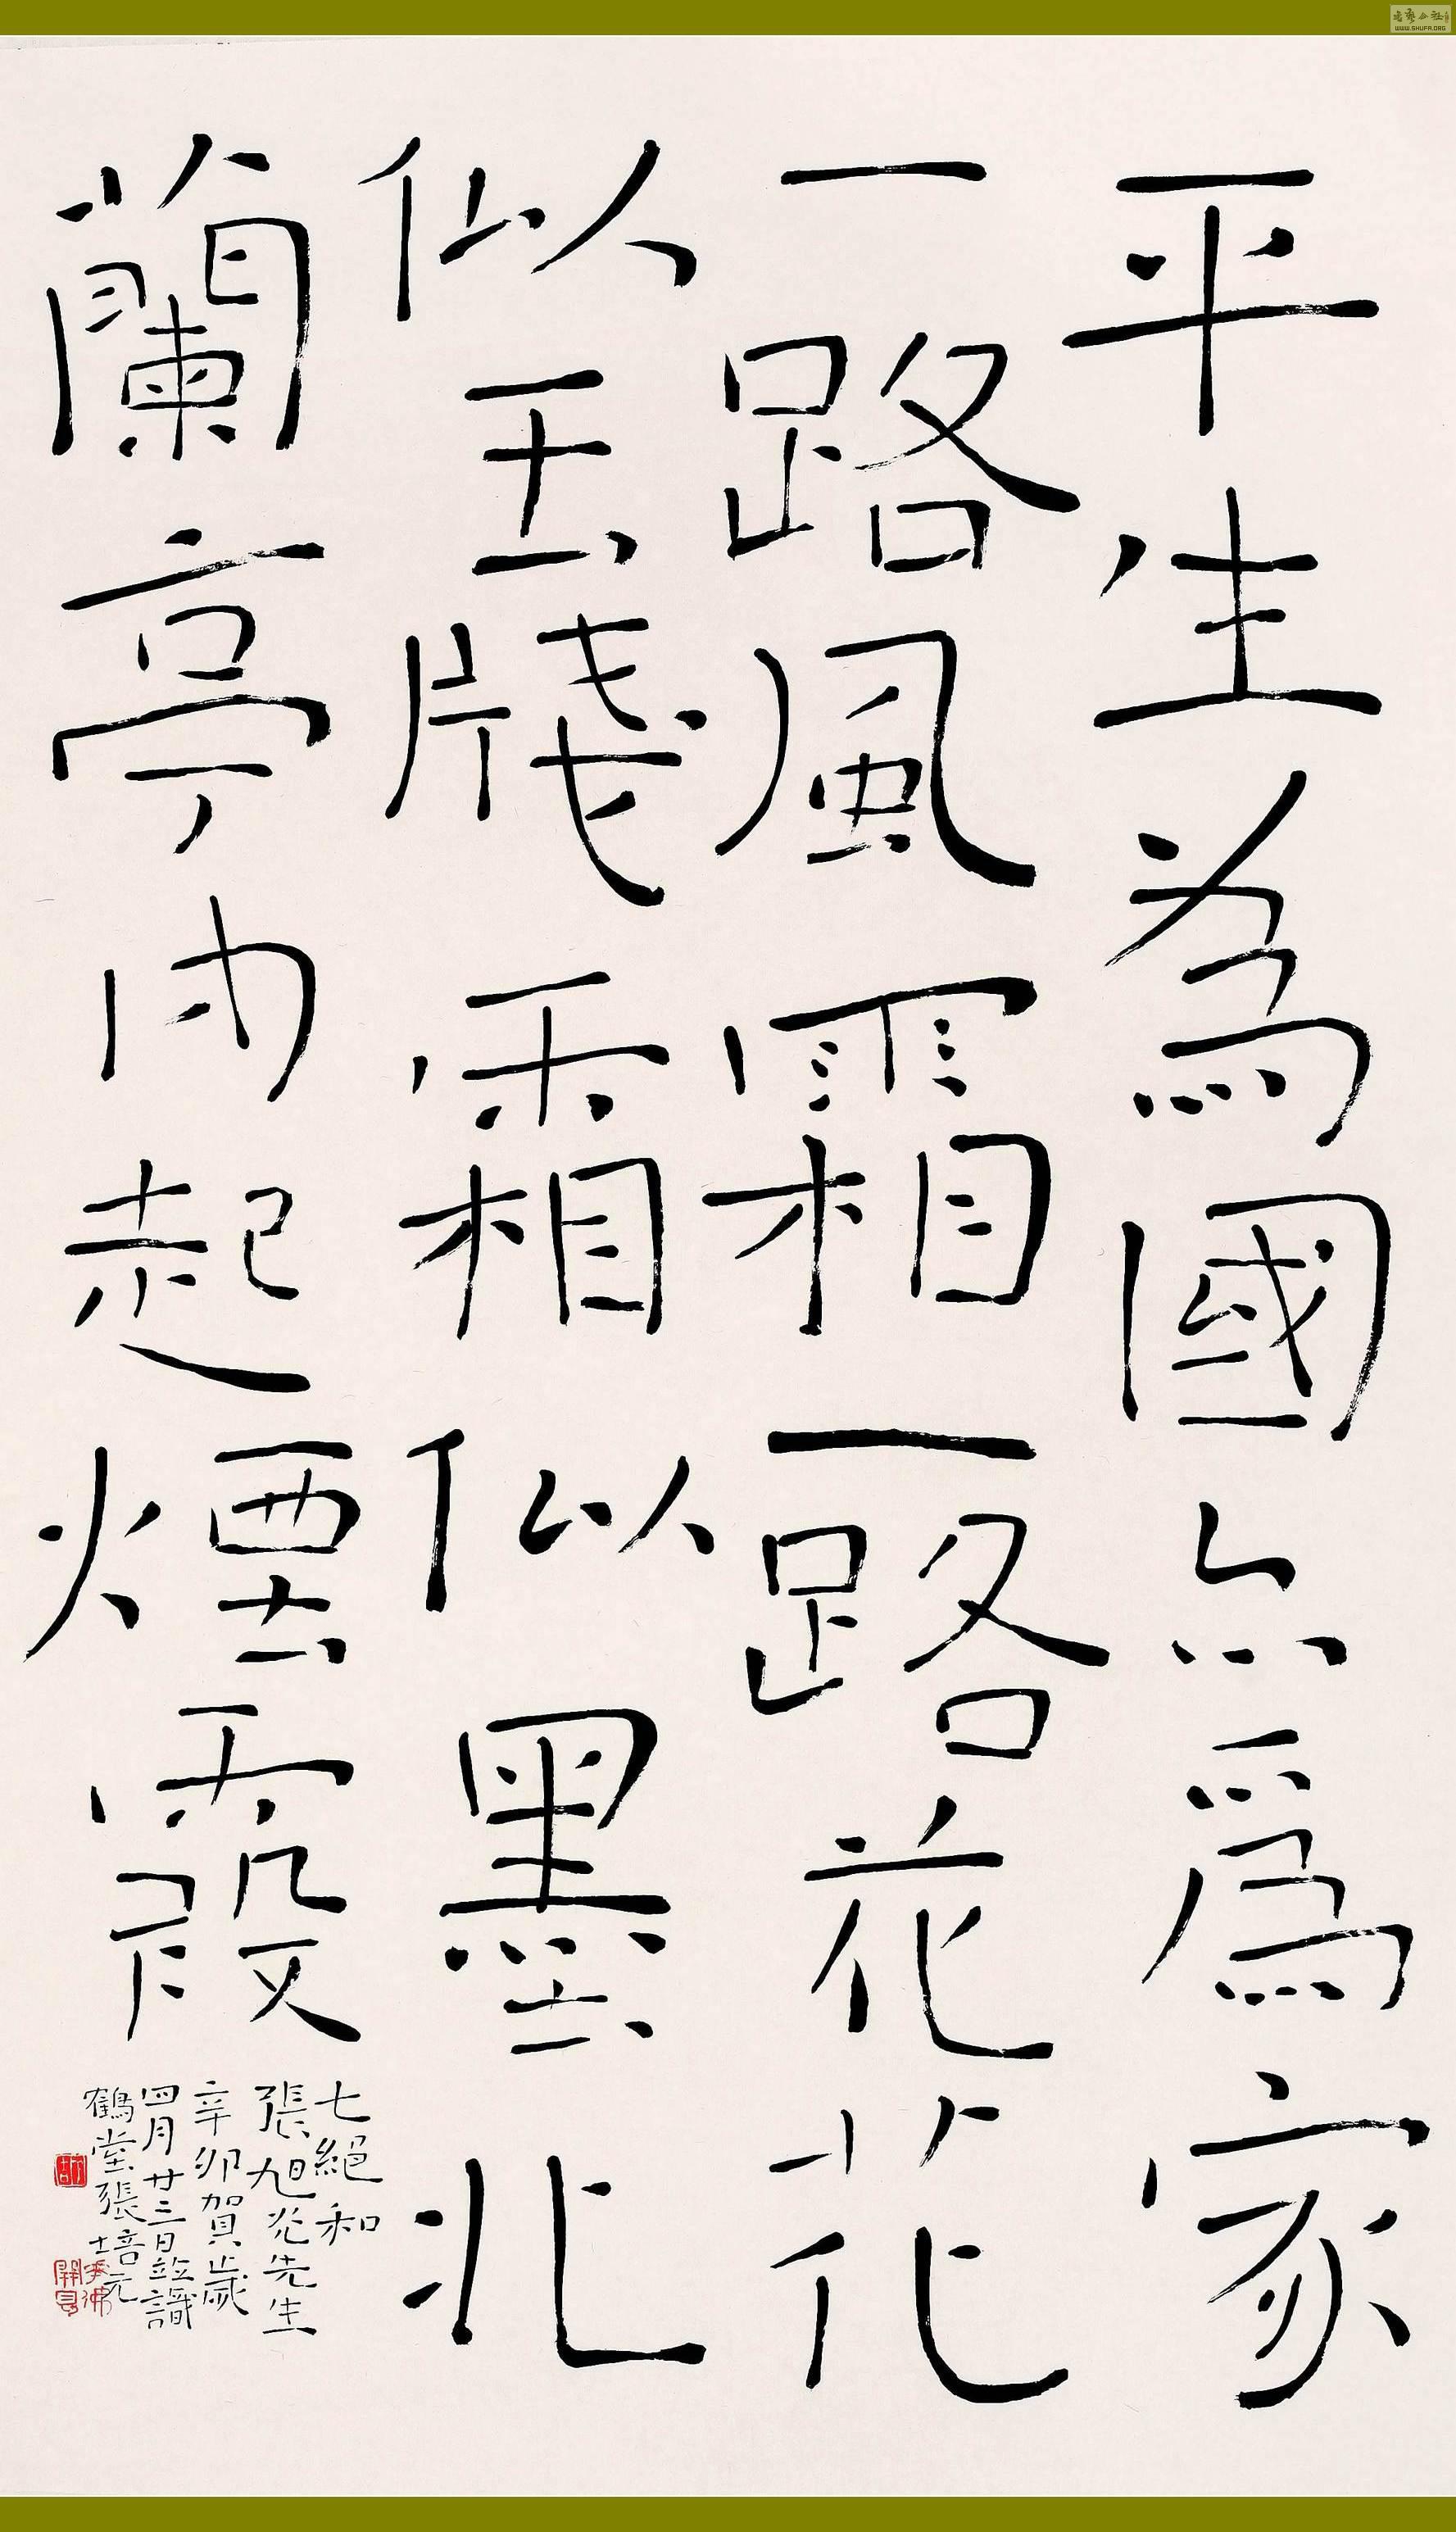 平生為國亦爲家
一路風霜一路花花
似玉牋霜似墨北
蘭亭内起煙霞
七絕和
張旭光先生
辛卯賀歲
四月廿三日並識
鶴堂張培元
WWW.SHUFA.ORG